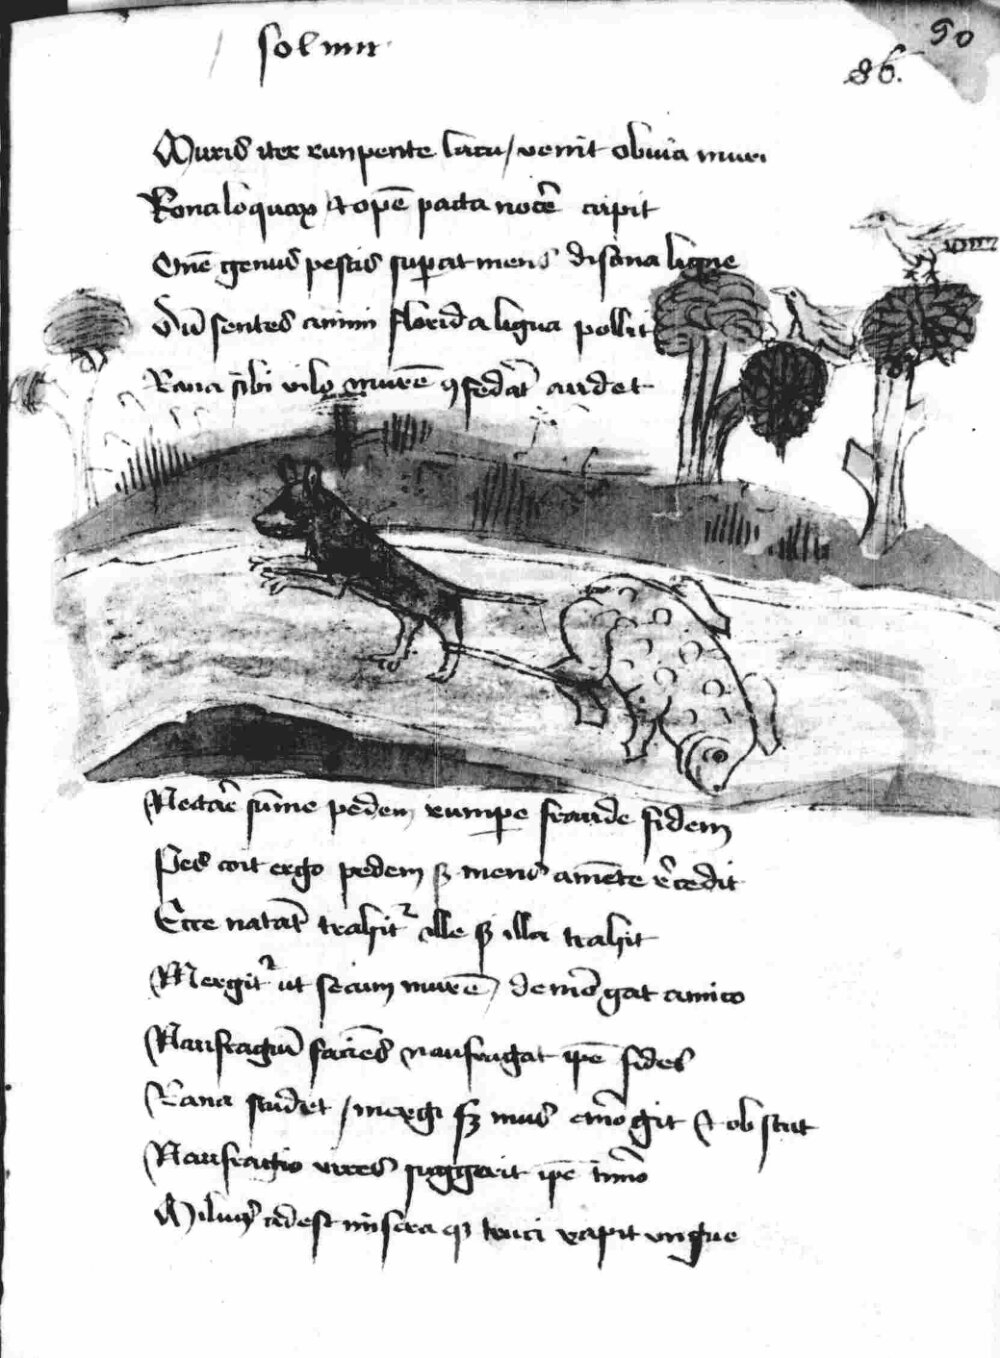 50
86.
Muris iter rumpente lacu / venit obvia muri
Rana loquax / & opē pacta nocē cupit
Om̄e genus pestis suꝑat mens dissona ligue
Dū sentes animi florida ligua pollit
Rana sibi vilꝫ murē ꝯfedāt audet
Nectār sūme pedem rumꝑe fraude fidem
Pes coit ergo pedem sꝫ mens a mēte rēcedit
Ecce natāt trahit² ille sꝫ illa trahit
Mergit² ut secum murē demērgat amico
Naufragiū faciēs naufragat ip̄e fides
Rana studet / mergi sꝫ mus em̄git & obstat
Naufragio vires suggerit ip̄e timōr
Milvus adest miseraqꝫ truci rapit ungue